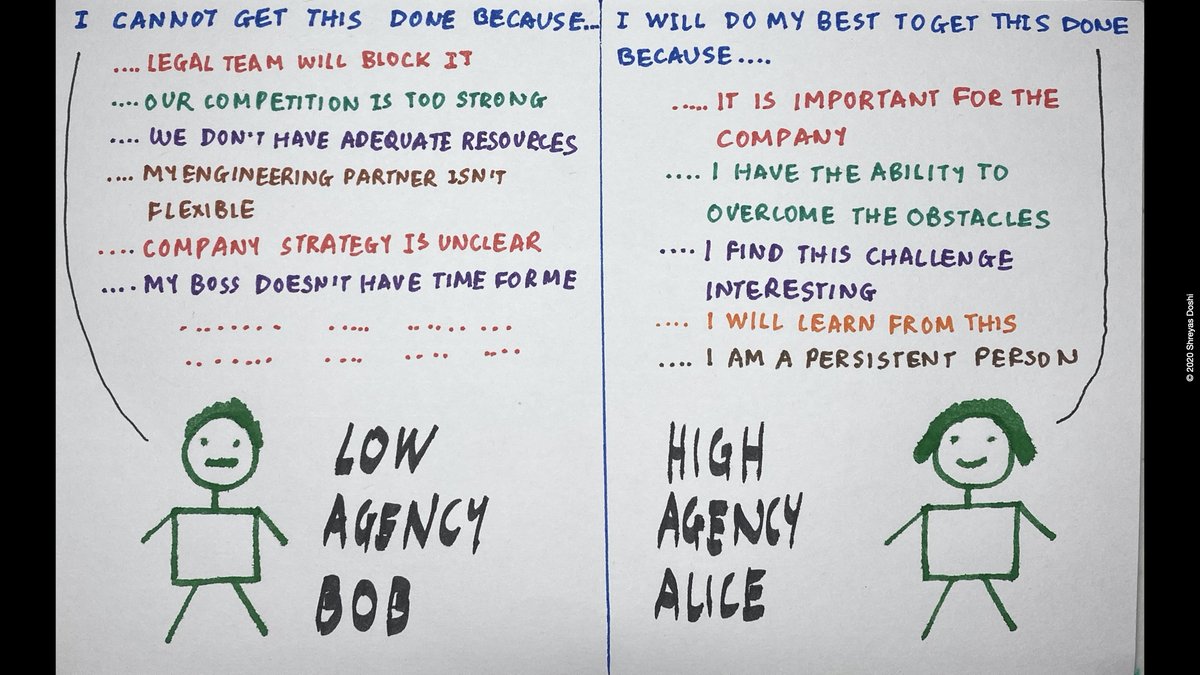 I CANNOT GET THIS DONE BECAUSE...
.... LEGAL TEAM WILL BLOCK IT
.... OUR COMPETITION IS TOO STRONG
.... WE DON'T HAVE ADEQUATE RESOURCES
.... MY ENGINEERING PARTNER ISN'T
FLEXIBLE
.... COMPANY STRATEGY IS UNCLEAR
.... MY BOSS DOESN'T HAVE TIME FOR ME
LOW
AGENCY
BOB
I WILL DO MY BEST TO GET THIS DONE
BECAUSE....
..... IT IS IMPORTANT FOR THE
COMPANY
.... I HAVE THE ABILITY TO
OVERCOME THE OBSTACLES
.... I FIND THIS CHALLENGE
INTERESTING
.... I WILL LEARN FROM THIS
.... I AM A PERSISTENT PERSON
HIGH
AGENCY
ALICE
© 2020 Shreyas Doshi